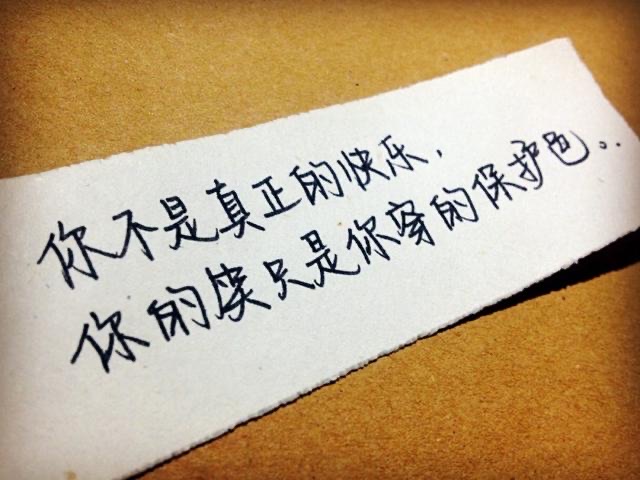 你不是真正的快乐，
你的笑只是你穿的保护色..